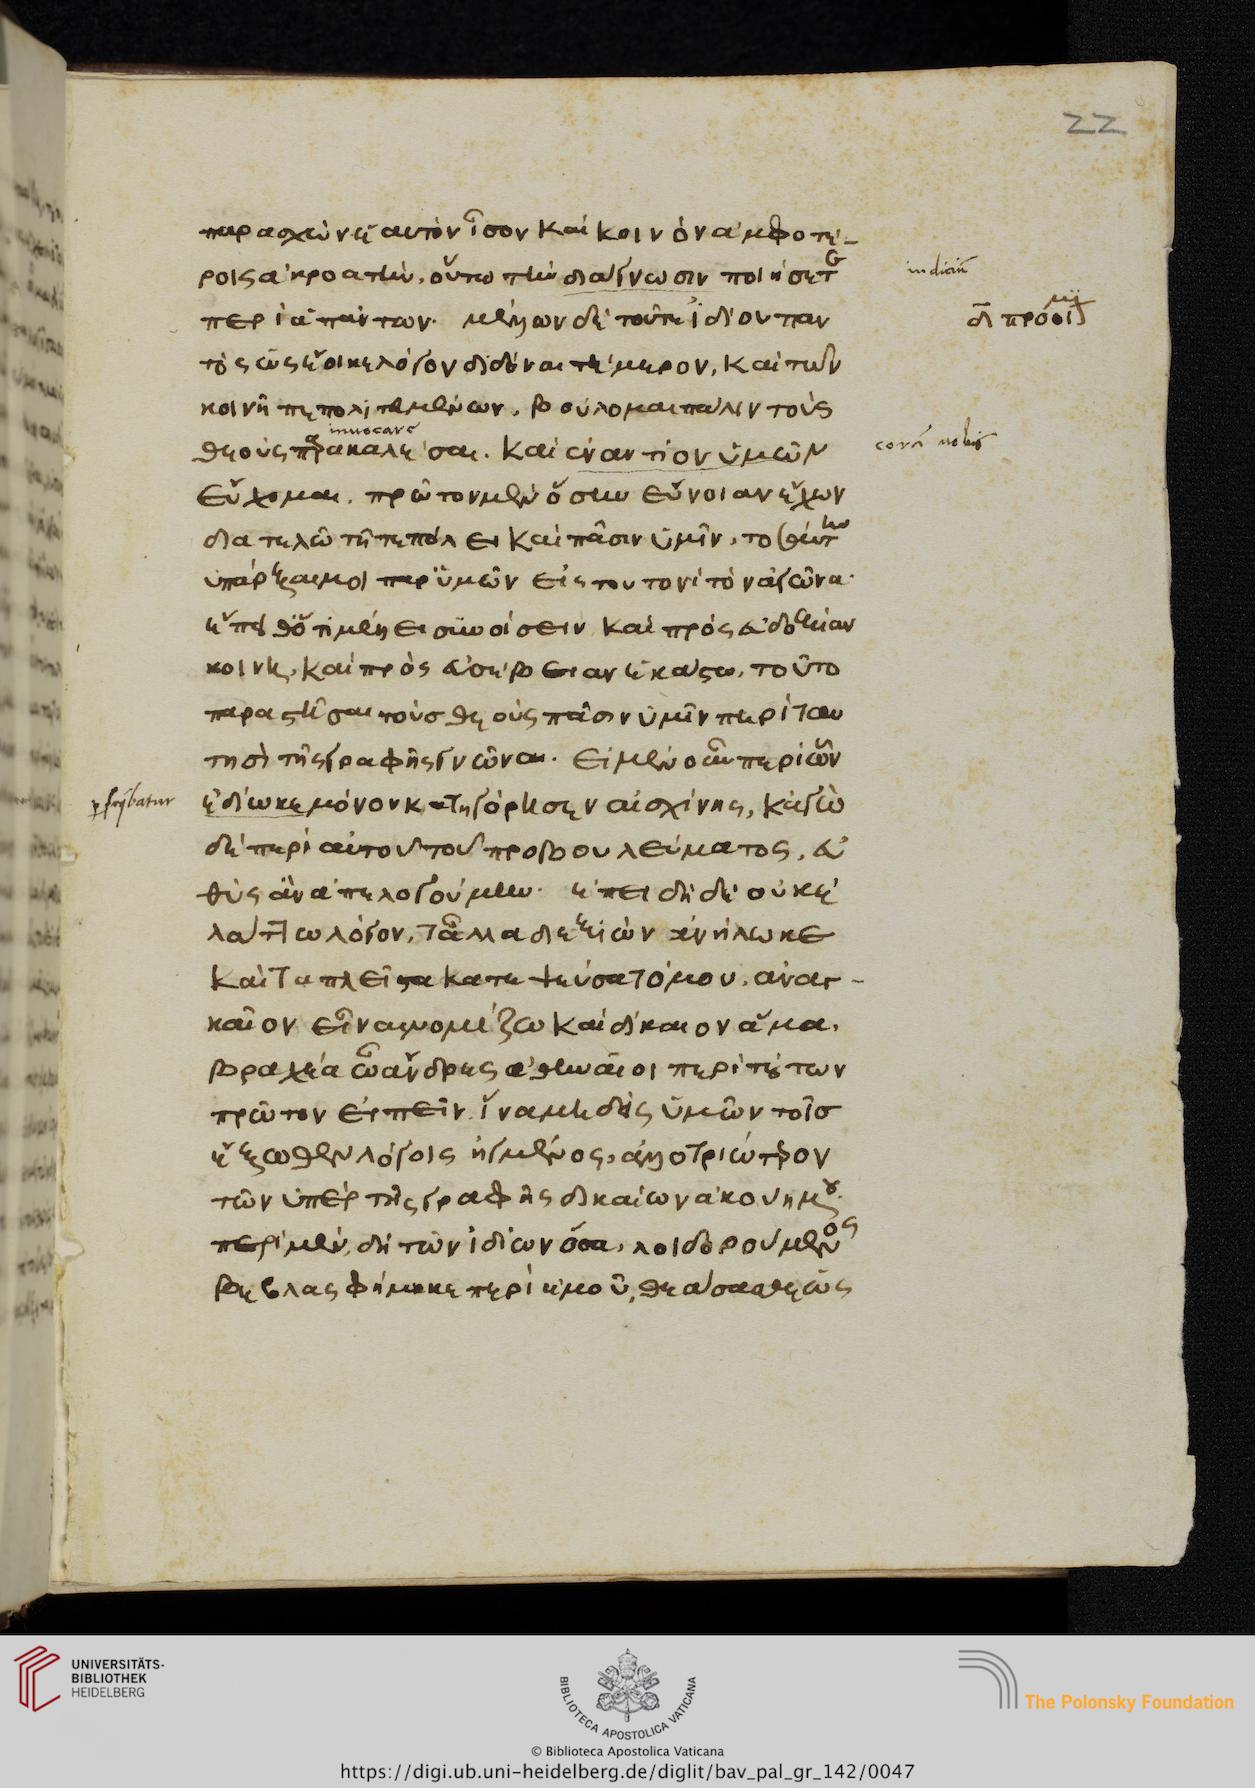 22
παρασχὼν ἑαυτὸν ἴσον καὶ κοινὸν ἀμφοτέ-
ροις ἀκροατήν, οὕτω τὴν διάγνωσιν ποιήσεται
indiciū
περὶ ἁπάντων. μέλλων δὲ τοῦτε ἰδίου παν
β΄ προοίμι
τὸς ὡς ἔοικε λόγον διδόναι τήμερον, καὶ τῶν
κοινῇ πεπολιτευμένων, βούλομαι πάλιν τοὺς
inuocare
θεοὺς παρακαλέσαι. καὶ ἐναντίον ὑμῶν
corā uobis
εὔχομαι. πρῶτον μὲν ὅσην εὔνοιαν ἔχων
διατελῶ τῇ τε πόλει καὶ πᾶσιν ὑμῖν, τοσαύτην
ὑπάρξαι μοι παρ' ὑμῶν εἰς τουτονὶ τὸν ἀγῶνα.
ἔπειθ' ὅτι μέλλει συνοίσειν καὶ πρὸς εὐδοξίαν
κοινῇ, καὶ πρὸς εὐσέβειαν ἑκάστω, τοῦτο
παραστῆσαι τοὺς θεοὺς πᾶσιν ὑμῖν περὶ ταυ
τησὶ τῆς γραφῆς γνῶναι. εἰ μὲν οὖν περὶ ὧν
ἐδίωκε μόνον κατηγόρησεν αἰσχίνης, κἀγὼ
δὲ περὶ αὐτοῦ τοῦ προβουλεύματος, εὐ
θὺς ἂν ἀπελογούμην. ἐπειδὴ δὲ οὐκ ἐ
λάττω λόγον, τἄλλα διεξιὼν ἀνήλωκε
καὶ τὰ πλεῖστα κατεψεύσατό μου, ἀναγ-
καῖον εἶναι νομίζω καὶ δίκαιον ἅμα,
βραχέα ὦ ἄνδρες ἀθηναῖοι περὶ τούτων
πρῶτον εἰπεῖν. ἵνα μηδεὶς ὑμῶν τοῖς
ἔξωθεν λόγοις ἠγμένος, ἀλλοτριώτερον
τῶν ὑπὲρ τῆς γραφῆς δικαίων ἀκούη μου.
περὶ μὲν δὴ τῶν ἰδίων ὅσα, λοιδορούμενος
βεβλασφήμηκε περὶ ἐμοῦ, θεάσασθε ὡς
UNIVERSITÄTS-
BIBLIOTHEK
HEIDELBERG
BIBLIOTECA APOSTOLICA VATICANA
The Polonsky Foundation
© Biblioteca Apostolica Vaticana
https://digi.ub.uni-heidelberg.de/diglit/bav_pal_gr_142/0047